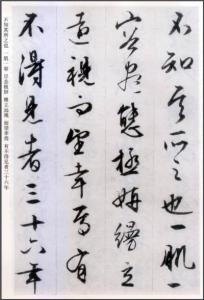 不知其所之也一肌一
容盡態極妍縵立
遠視而望幸焉有
不得見者三十六年
不知其所之也 一肌一容 盡態極妍 縵立遠視 而望幸焉 有不得見者三十六年